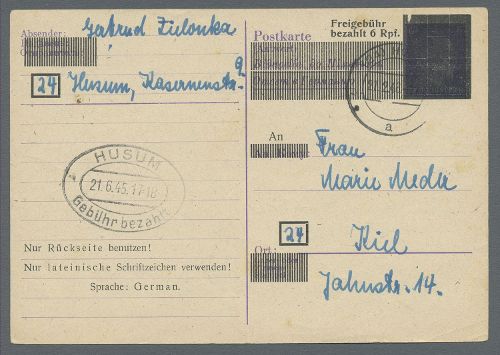 Absender:
Gertrud Zielonka
24 Husum, Kasernenstr. 9
HUSUM
21.6.45.17-18
Gebühr bezahlt
Nur Rückseite benutzen!
Nur lateinische Schriftzeichen verwenden!
Sprache: German.
Postkarte
Freigebühr
bezahlt 6 Rpf.
a
An
Frau
Marie Meder
24 Kiel
Ort:
Jahnstr. 14.